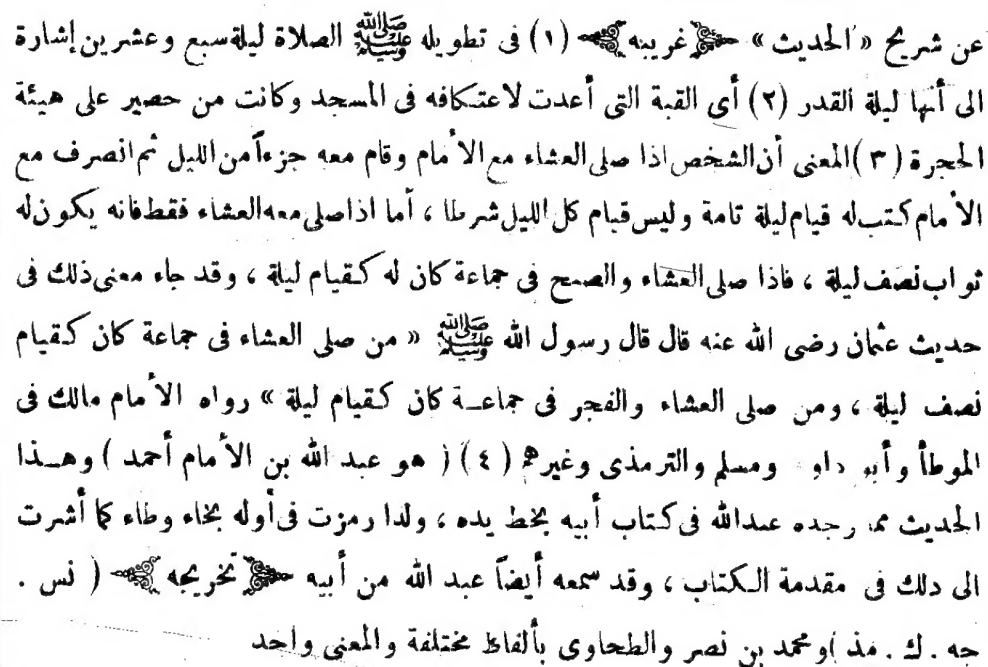 عن شريح « الحديث » ﴿غريبه﴾ (١) فى تطويله ﷺ الصلاة ليلة سبع وعشرين إشارة
الى أنها ليلة القدر (٢) أى القبة التى أعدت لاعتكافه فى المسجد وكانت من حصير على هيئة
الحجرة (٣) المعنى أن الشخص اذا صلى العشاء مع الأمام وقام معه جزءاً من الليل ثم انصرف مع
الأمام كتب له قيام ليلة تامة وليس قيام كل الليل شرطا ، أما اذا صلى معه العشاء فقط فانه يكون له
ثواب نصف ليلة ، فاذا صلى العشاء والصبح فى جماعة كان له كقيام ليلة ، وقد جاء معنى ذلك فى
حديث عثمان رضى الله عنه قال قال رسول الله ﷺ « من صلى العشاء فى جماعة كان كقيام
نصف ليلة ، ومن صلى العشاء والفجر فى جماعـة كان كقيام ليلة » رواه الأمام مالك فى
الموطأ وأبو داو ومسلم والترمذى وغيرهم (٤) ( هو عبد الله بن الأمام أحمد ) وهـذا
الحديث مما وجده عبدالله فى كتاب أبيه بخط يده ، ولذا رمزت فى أوله بخاء وطاء كما أشرت
الى ذلك فى مقدمة الكتاب ، وقد سمعه أيضاً عبد الله من أبيه ﴿تخريجه﴾ ( نس .
جه . ك . مذ ) ومحمد بن نصر والطحاوى بألفاظ مختلفة والمعنى واحد